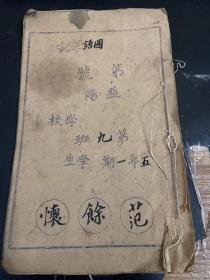 國語筆記
第 號
益陽
學校
第九班
五年一期 學生
范餘懷